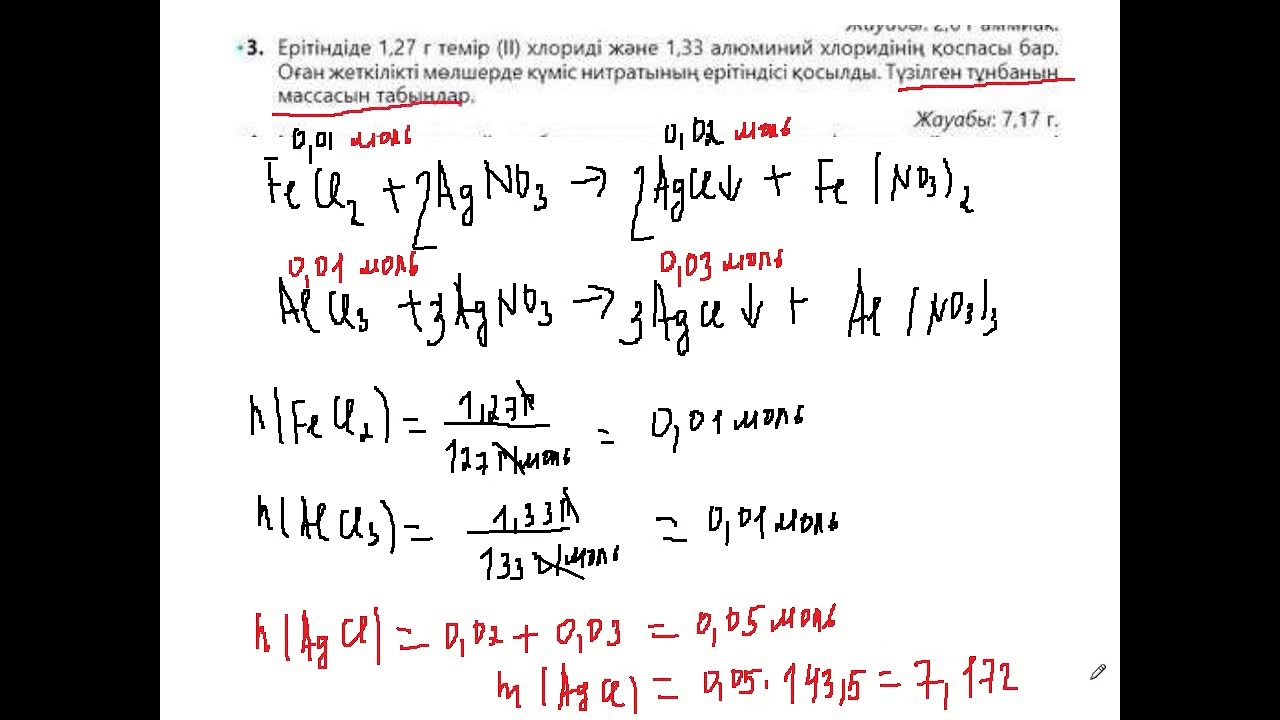 Жауабы: 2,61 аммиак.
*3. Ерітіндіде 1,27 г темір (II) хлориді және 1,33 алюминий хлоридінің қоспасы бар.
Оған жеткілікті мөлшерде күміс нитратының ерітіндісі қосылды. Түзілген тұнбаның
массасын табыңдар.
Жауабы: 7,17 г.
0,01 моль 0,02 моль
FeCl2 + 2AgNO3 → 2AgCl↓ + Fe(NO3)2
0,01 моль 0,03 моль
AlCl3 + 3AgNO3 → 3AgCl↓ + Al(NO3)3
n(FeCl2) = 1,27г / 127г/моль = 0,01 моль
n(AlCl3) = 1,33г / 133г/моль = 0,01 моль
n(AgCl) = 0,02 + 0,03 = 0,05 моль
m(AgCl) = 0,05·143,5 = 7,172